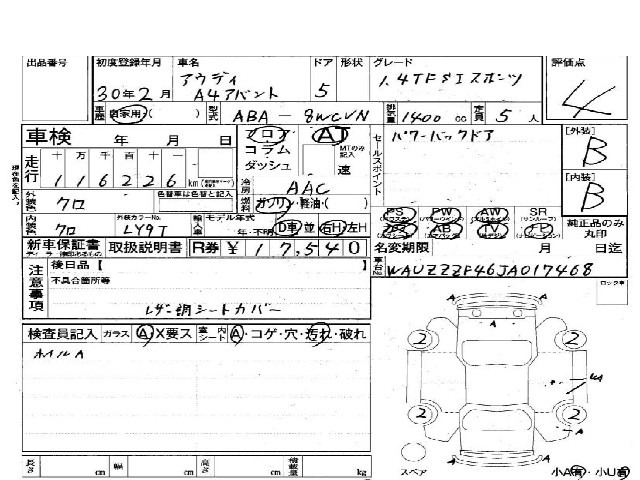 出品番号 初度登録年月 車名 ドア 形状 グレード 評価点
アウディ
30年2月 A4アバント 5 1.4TFSIスポーツ 4
車歴 自家用・( ) 型式 ABA-8WCVN 排気量 1400 cc 定員 5 人
車検 年 月 日 フロア AT パワーバックドア 【外装】
走行 十 万 千 百 十 一 コラム MTのみ記入 セールスポイント B
116226 km ダッシュ 速 【内装】
冷房 AAC B
外装色 クロ 色替車は色替と記入 燃料 ガソリン・軽油・( )
PS PW AW SR
内装色 クロ 外装カラーNo. LY9T 輸入車 モデル年式 年・不明 D車 並 右H 左H AB TV 純正品のみ丸印
新車保証書 取扱説明書 R券 ¥17,540 名変期限 月 日迄
注意事項 後日品【 】 車台No. WAUZZZF46JA017468
不具合箇所等 ロック車
レザー調シートカバー
検査員記入 ガラス A X要ス 室内シート A・コゲ・穴・汚れ・破れ
ホイルA
A
2 2
A
2 2
A
A
スペア 小A有・小U有
長さ cm 幅 cm 高さ cm 積載量 kg
現在色を記入。